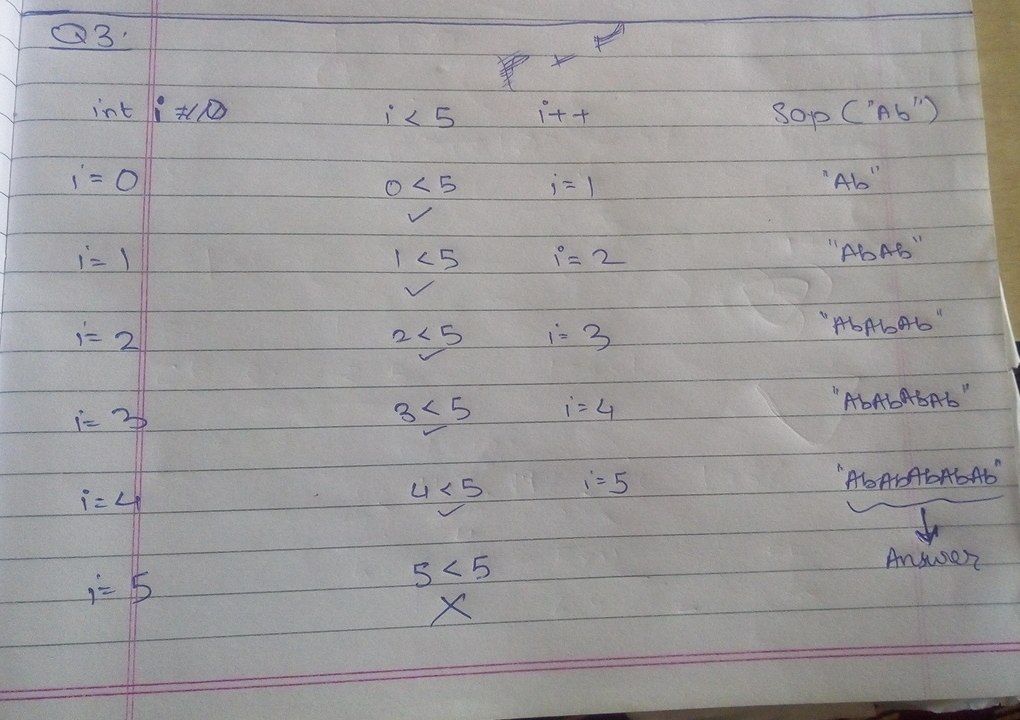 Q3.
int i i < 5 i++ Sop ("Ab")
i = 0 0 < 5 i = 1 "Ab"
✓
i = 1 1 < 5 i = 2 "AbAb"
✓
i = 2 2 < 5 i = 3 "AbAbAb"
✓
i = 3 3 < 5 i = 4 "AbAbAbAb"
✓
i = 4 4 < 5 i = 5 "AbAbAbAbAb"
✓
Answer
i = 5 5 < 5
X